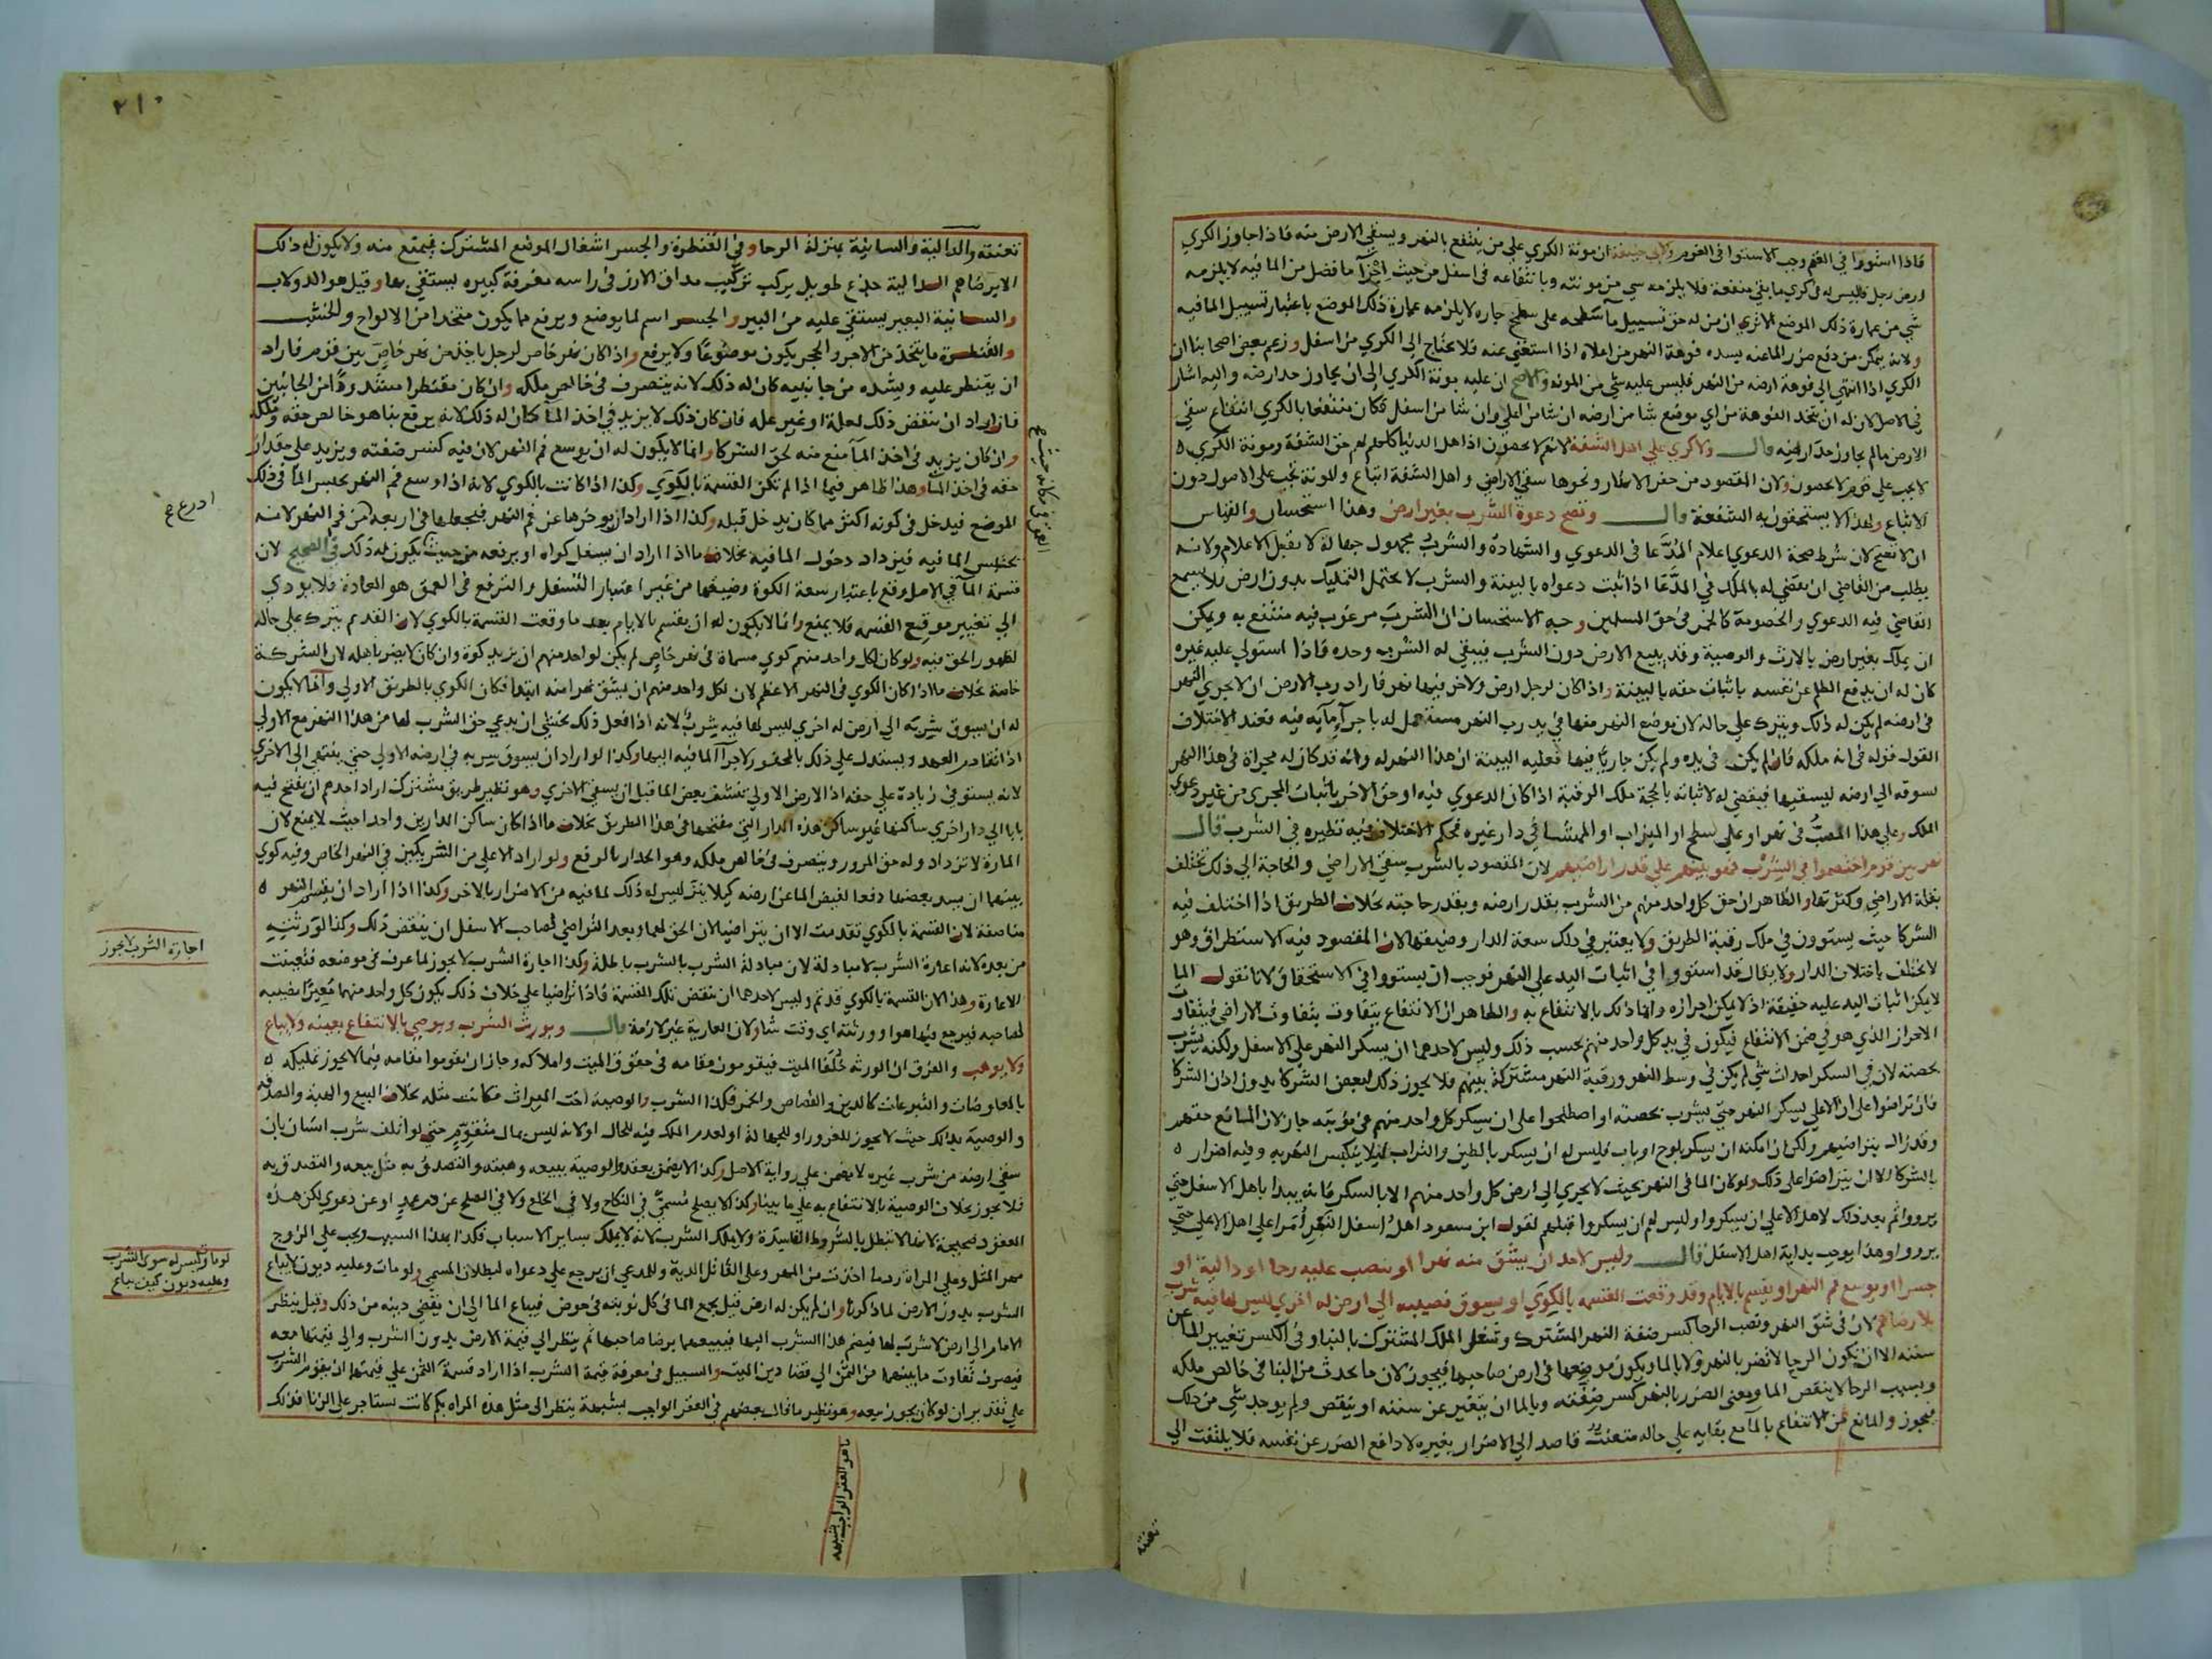 فاذا استووا في الغنم وجب الاستوا في الغرم ولابي حنيفة ان مونة الكري على من ينتفع بالنهر ويسقي الارض منه فاذا جاوز الكري
ارض رجل فليس له في كري ما بقي منفعة فلا يلزمه شي من مونته وبانتفاعه في اسفل من حيث اجرا ما فضل من الما فيه لا يلزمه
شي من عمارة ذلك الموضع الاتري ان من له حق تسييل ما سطحه على سطح جاره لا يلزمه عمارة ذلك الموضع باعتبار تسييل الما فيه
ولانه يتمكن من دفع ضرر الما عنه بسده فوهة النهر من اعلاه اذا استغني عنه فلا يحتاج الى الكري من اسفل وزعم بعض اصحابنا ان
الكري اذا انتهي الى فوهة ارضه من النهر فليس عليه شي من المونه والاصح ان عليه مونة الكري الى ان يجاوز حد ارضه واليه اشار
في الاصل لان له ان يتخذ الفوهة من اي موضع شا من ارضه ان شا من اعلي وان شا من اسفل فكان منتفعا بالكري انتفاع سقي
الارض ما لم يجاوز حد ارضه قال ولا كري على اهل الشفة لانهم لا يحصون اذ اهل الدنيا كلهم لهم حق الشفة ومونة الكري
لا يجب على قوم لا يحصون ولان المقصود من حفر الانهار ونحوها سقي الاراضي واهل الشفة اتباع والمونة تجب على الاصول دون
الاتباع ولهذا لا يستحقون به الشفعة قال وتصح دعوة الشرب بغير ارض وهذا استحسان والقياس
ان لا تصح لان شرط صحة الدعوي اعلام المدعا في الدعوي والشهادة والشرب مجهول جهالة لا يقبل الاعلام ولانه
يطلب من القاضي ان يقضي له بالملك في المدعا اذا ثبت دعواه بالبينة والشرب لا يحتمل التمليك بدون ارض فلا يسمع
القاضي فيه الدعوي والخصومة كالخمر في حق المسلمين وجه الاستحسان ان الشرب مرغوب فيه منتفع به ويمكن
ان يملك بغير ارض بالارث والوصية وقد يبيع الارض دون الشرب فيبقي له الشرب وحده فاذا استولي عليه غيره
كان له ان يدفع الظلم عن نفسه باثبات حقه بالبينة واذا كان لرجل ارض ولاخر فيها نهر فاراد رب الارض ان لا يجري النهر
في ارضه لم يكن له ذلك ويترك على حاله لان موضع النهر منها في يد رب النهر مستعمل له باجرآء مآيه فيه فعند الاختلاف
القول قوله في انه ملكه فان لم يكن في يده ولم يكن جاريا فيها فعليه البينة ان هذا النهر له وانه قد كان له مجراة في هذا النهر
يسوقه الى ارضه ليسقيها فيقضي له لاثباته بالحجة ملك الرقبة اذا كان الدعوي فيه او حق الاخر باثبات المجري من غير دعوي
الملك وعلى هذا المصب في نهر او على سطح او الميزاب او الممشا في دار غيره فحكم الاختلاف فيه نظيره في الشرب قال
نهر بين قوم اختصموا في الشرب فهو بينهم على قدر اراضيهم لان المقصود بالشرب سقي الاراضي والحاجة الى ذلك تختلف
بقلة الاراضي وكثرتها والظاهر ان حق كل واحد منهم من الشرب بقدر ارضه وبقدر حاجته بخلاف الطريق اذا اختلف فيه
الشركا حيث يستوون في ملك رقبة الطريق ولا يعتبر في ذلك سعة الدار وضيقها لان المقصود فيه الاستطراق وهو
لا يختلف باختلاف الدار ولا يقال قد استووا في اثبات اليد على النهر فوجب ان يستووا في الاستحقاق لانا نقول الما
لا يمكن اثبات اليد عليه حقيقة اذ لا يمكن احرازه وانما ذلك بالانتفاع به والظاهر ان الانتفاع يتفاوت بتفاوت الاراضي فيتفاوت
الاحراز الذي هو في ضمن الانتفاع فيكون في يد كل واحد منهم بحسب ذلك وليس لاحدهما ان يسكر النهر على الاسفل ولكنه يشرب
بحصته لان في السكر احداث شي لم يكن في وسط النهر ورقبة النهر مشتركة بينهم فلا يجوز ذلك لبعض الشركا بدون اذن الشركا
فان تراضوا على ان الاعلي يسكر النهر حتي يشرب بحصته او اصطلحوا على ان يسكر كل واحد منهم في نوبته جاز لان المانع حقهم
وقد زال بتراضيهم ولكن ان امكنه ان يسكر بلوح او باب فليس له ان يسكر بالطين والتراب ليلا ينكبس النهر به وفيه اضرار
بالشركا الا ان يتراضوا على ذلك ولو كان الما في النهر بحيث لا يجري الى ارض كل واحد منهم الا بالسكر فانه يبدا باهل الاسفل حتي
يرووا ثم بعد ذلك لاهل الاعلي ان يسكروا وليس لهم ان يسكروا قبلهم لقول ابن مسعود اهل اسفل النهر امرا على اهل الاعلي حتي
يرووا وهذا يوجب بداية اهل الاسفل قال وليس لاحد ان يشق منه نهرا او ينصب عليه رحا او دالية او
جسرا او يوسع فم النهر او يقسم بالايام وقد وقعت القسمة بالكوي او يسوق نصيبه الى ارض له اخري ليس لها فيه شرب
بلا رضاهم لان في شق النهر ونصب الرحا كسر ضفة النهر المشترك وشغل الملك المشترك بالبنا وفي الكسر تغيير الما عن
سننه الا ان يكون الرحا لا تضر بالنهر ولا بالما ويكون موضعها في ارض صاحبها فيجوز لان ما يحدث من البنا في خالص ملكه
وبسبب الرحا لا ينقص الما ومعني الضرر بالنهر كسر ضفته وبالما ان يتغير عن سننه او ينقص ولم يوجد شي من ذلك
فيجوز والمانع من الانتفاع بالمآ مع بقايه على حاله متعنت قاصد الى الاضرار بغيره لا دافع الضرر عن نفسه فلا يلتفت الى
تعنته
٢١٠
تعنته والدالية والسانية بمنزلة الرحا وفي القنطرة والجسر اشغال الموضع المشترك فيمنع منه ولا يكون له ذلك
الا برضاهم الدالية جذع طويل يركب تركيب مداق الارز في راسه مغرفة كبيره يستقي بها وقيل هو الدولاب
والسانية البعير يستقي عليه من البير والجسر اسم لما يوضع ويرفع مما يكون متخذا من الالواح والخشب
والقنطرة ما يتخذ من الاجر والحجر يكون موضوعا ولا يرفع واذا كان نهر خاص لرجل ياخذ من نهر خاص بين قوم فاراد
ان يقنطر عليه ويشده من جانبيه كان له ذلك لانه يتصرف في خالص ملكه وان كان مقنطرا مشدودا من الجانبين
فاراد ان ينقض ذلك لعلة او غير علة فان كان ذلك لا يزيد في اخذ المآ كان له ذلك لانه يرفع بنا هو خالص حقه وملكه
وان كان يزيد في اخذ المآ منع منه لحق الشركا وانما لا يكون له ان يوسع فم النهر لان فيه كسر ضفته ويزيد على مقدار
حقه في اخذ المآ وهذا ظاهر فيما اذا لم تكن القسمة بالكوي وكذا اذا كانت بالكوي لانه اذا وسع فم النهر يحبس المآ في ذلك
الموضع فيدخل في كوته اكثر مما كان يدخل قبله وكذا اذا اراد ان يوخرها عن فم النهر فيجعلها في اربعة من فم النهر لانه
يحتبس الما فيه فيزداد دخول الما فيه بخلاف ما اذا اراد ان يسفل كواه او يرفعه من حيث يكون له ذلك في الصحيح لان
قسمة المآ في الاصل وقع باعتبار سعة الكوة وضيقها من غير اعتبار التسفل والترفع في العمق هو العادة فلا يودي
الى تغيير موضع القسمه فلا يمنع وانما لا يكون له ان يقسم بالايام بعد ما وقعت القسمة بالكوي لان القديم يترك على حاله
لظهور الحق فيه ولو كان لكل واحد منهم كوي مسماة في نهر خاص لم يكن لواحد منهم ان يزيد كوة وان كان لا يضر باهله لان الشركة
خاصة بخلاف ما اذا كان الكوي في النهر الاعظم لان لكل واحد منهم ان يشق نهرا منه ابتدا فكان الكوي بالطريق الاولي وانما لا يكون
له ان يسوق شربه الى ارض له اخري ليس لها فيه شرب لانه اذا فعل ذلك يخشي ان يدعي حق الشرب لها من هذا النهر مع الاولي
اذا تقادم العهد ويستدل على ذلك بالحفور لاجرآ الما فيه اليها وكذا لو اراد ان يسوق شربه في ارضه الاولي حتي ينتهي الى الاخري
لانه يستوفي زيادة على حقه اذ الارض الاولي تنشف بعض الما قبل ان يسقي الاخري وهو نظير طريق مشترك اراد احدهم ان يفتح فيه
بابا الى دار اخري ساكنها غير ساكن هذه الدار التي مفتحها في هذا الطريق بخلاف ما اذا كان ساكن الدارين واحدا حيث لا يمنع لان
المارة لا تزداد وله حق المرور ويتصرف في خالص ملكه وهو الجدار بالرفع ولو اراد الاعلي من الشريكين في النهر الخاص وفيه كوي
بينهما ان يسد بعضها دفعا لفيض الما عن ارضه كيلا ينز ليس له ذلك لما فيه من الاضرار بالاخر وكذا اذا اراد ان يقسم النهر
مناصفة لان القسمة بالكوي تقدمت الا ان يتراضيا لان الحق لهما وبعد التراضي لصاحب الاسفل ان ينقض ذلك وكذا لورثته
من بعده لانه اعارة الشرب لا مبادلة لان مبادلة الشرب بالشرب باطلة وكذا اجارة الشرب لا يجوز لما عرف في موضعه فتعينت
الاعارة وهذا لان القسمة بالكوي قد تم وليس لاحدهما ان ينقض تلك القسمة فاذا تراضيا على خلاف ذلك يكون كل واحد منهما معيرا نصيبه
لصاحبه فيرجع فيها هو او ورثته اي وقت شا ولان العارية غير لازمة قال ويورث الشرب ويوصي بالانتفاع بعينه ولا يباع
ولا يوهب والفرق ان الورثه خلفا الميت فيقومون مقامه في حقوق الميت واملاكه وجاز ان يقوموا مقامه فيما لا يجوز تمليكه
بالمعاوضات والتبرعات كالدين والقصاص والخمر فكذا الشرب والوصية اخت الميراث فكانت مثله بخلاف البيع والهبة والصدقة
والوصية بذلك حيث لا يجوز للغرور او للجهالة او لعدم الملك فيه للحال او لانه ليس بمال متقوم حتي لو اتلف شرب انسان بان
سقي ارضه من شرب غيره لا يضمن على رواية الاصل وكذا لا يضمن بعقد والوصية ببيعه وهبته والتصدق به مثل بيعه والتصدق به
فلا يجوز بخلاف الوصية بالانتفاع به على ما بينا وكذا لا يصلح مسمي في النكاح ولا في الخلع ولا في الصلح عن دم عمد او عن دعوي لكن هذه
العقود صحيحة لانها لا تبطل بالشروط الفاسدة ولا يملك الشرب لانه لا يملك بساير الاسباب فكذا بهذا السبب ويجب على الزوج
مهر المثل وعلى المراة رد ما اخذت من المهر وعلى القاتل الدية وللمدعي ان يرجع على دعواه لبطلان المسمي ولو مات وعليه ديون لا يباع
الشرب بدون الارض لما ذكرنا وان لم يكن له ارض قيل يجمع الما في كل نوبته في حوض فيباع الما الى ان يقضي دينه من ذلك وقيل ينظر
الامام الى ارض لا شرب لها فيضم هذا الشرب اليها فيبيعهما برضا صاحبها ثم ينظر الى قيمة الارض بدون الشرب والى قيمتها معه
فيصرف تفاوت ما بينهما من الثمن الى قضا دين الميت والسبيل في معرفة قيمة الشرب اذا اراد قسمة الثمن على قيمتهما ان يقوم الشرب
على تقدير ان لو كان يجوز بيعه وهو نظير ما قال بعضهم في العقر الواجب بشبهة ينظر الى مثل هذه المراه بكم كانت تستاجر على الزنا فذلك
اجارة الشرب لا يجوز
لو مات وليس له سوي الشرب
وعليه ديون كيف يباع
ما هو العقر الواجب بشبهه